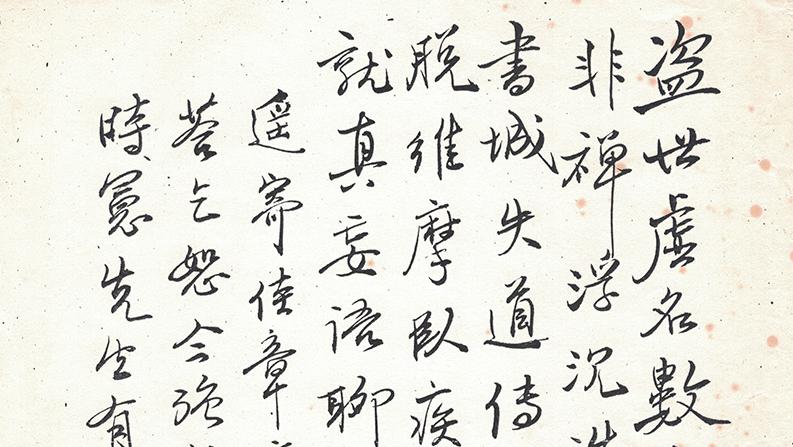 盗世虛名數
非禪浮沉
書城失道傳
脱維摩臥疾
就真妄語聊
遥寄佳章
荅乞恕今強
時憲先生有